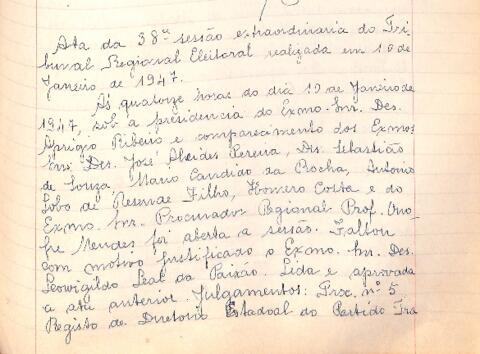 Ata da 38ª sessão extraordinaria do Tri
bunal Regional Eleitoral realizada em 10 de
Janeiro de 1947.
Ás quatorze horas do dia 10 de Janeiro de
1947, sob a presidencia do Exmo. Snr. Des.
Aprigio Ribeiro e comparecimento dos Exmos
Snrs. Des. José Alcides Pereira, Des. Sebastião
de Souza, Mario Candido da Rocha, Antonio
Lobo de Resende Filho, Homero Costa e do
Exmo. Snr. Procurador Regional Prof. Ono
fre Mendes foi aberta a sessão. Faltou
com motivo justificado o Exmo. Snr. Des.
Leovigildo Leal da Paixão. Lida e aprovada
a ata anterior. Julgamentos: Proc. nº 5
Registo de Diretorio Estadoal do Partido Tra